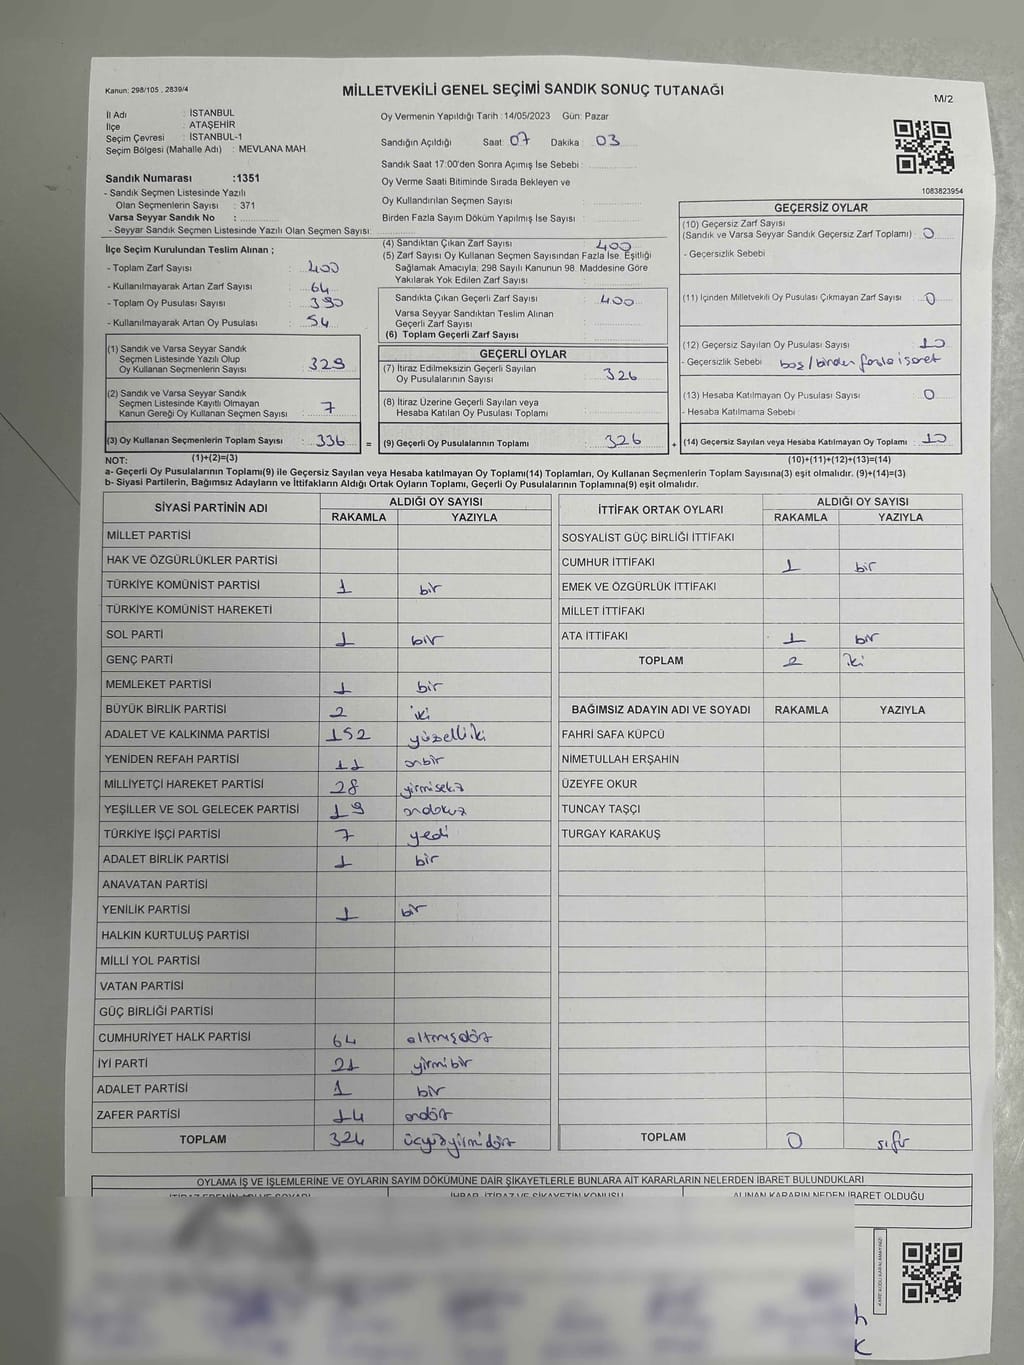 Kanun: 298/105 , 2839/4
MİLLETVEKİLİ GENEL SEÇİMİ SANDIK SONUÇ TUTANAĞI
M/2
İl Adı : İSTANBUL
İlçe : ATAŞEHİR
Seçim Çevresi : İSTANBUL-1
Seçim Bölgesi (Mahalle Adı) : MEVLANA MAH.
Oy Vermenin Yapıldığı Tarih : 14/05/2023 Gün: Pazar
Sandığın Açıldığı Saat: 07 Dakika : 03
Sandık Saat 17:00'den Sonra Açımış İse Sebebi :
Oy Verme Saati Bitiminde Sırada Bekleyen ve
Oy Kullandırılan Seçmen Sayısı :
Birden Fazla Sayım Döküm Yapılmış İse Sayısı :
1083823954
Sandık Numarası :1351
- Sandık Seçmen Listesinde Yazılı
Olan Seçmenlerin Sayısı : 371
Varsa Seyyar Sandık No :
- Seyyar Sandık Seçmen Listesinde Yazılı Olan Seçmen Sayısı:
İlçe Seçim Kurulundan Teslim Alınan ;
- Toplam Zarf Sayısı : 400
- Kullanılmayarak Artan Zarf Sayısı : 64
- Toplam Oy Pusulası Sayısı : 390
- Kullanılmayarak Artan Oy Pusulası : 54
(1) Sandık ve Varsa Seyyar Sandık
Seçmen Listesinde Yazılı Olup
Oy Kullanan Seçmenlerin Sayısı : 329
(2) Sandık ve Varsa Seyyar Sandık
Seçmen Listesinde Kayıtlı Olmayan
Kanun Gereği Oy Kullanan Seçmen Sayısı : 7
(3) Oy Kullanan Seçmenlerin Toplam Sayısı : 336 =
(4) Sandıktan Çıkan Zarf Sayısı : 400
(5) Zarf Sayısı Oy Kullanan Seçmen Sayısından Fazla İse, Eşitliği
Sağlamak Amacıyla; 298 Sayılı Kanunun 98. Maddesine Göre
Yakılarak Yok Edilen Zarf Sayısı :
Sandıkta Çıkan Geçerli Zarf Sayısı : 400
Varsa Seyyar Sandıktan Teslim Alınan
Geçerli Zarf Sayısı :
(6) Toplam Geçerli Zarf Sayısı :
GEÇERLİ OYLAR
(7) İtiraz Edilmeksizin Geçerli Sayılan
Oy Pusulalarının Sayısı : 326
(8) İtiraz Üzerine Geçerli Sayılan veya
Hesaba Katılan Oy Pusulası Toplamı :
(9) Geçerli Oy Pusulalarının Toplamı : 326 +
GEÇERSİZ OYLAR
(10) Geçersiz Zarf Sayısı
(Sandık ve Varsa Seyyar Sandık Geçersiz Zarf Toplamı) : 0
- Geçersizlik Sebebi :
(11) İçinden Milletvekili Oy Pusulası Çıkmayan Zarf Sayısı : 0
(12) Geçersiz Sayılan Oy Pusulası Sayısı : 10
- Geçersizlik Sebebi : boş/birden fazla işaret
(13) Hesaba Katılmayan Oy Pusulası Sayısı : 0
- Hesaba Katılmama Sebebi :
(14) Geçersiz Sayılan veya Hesaba Katılmayan Oy Toplamı : 10
NOT: (1)+(2)=(3) (10)+(11)+(12)+(13)=(14)
a- Geçerli Oy Pusulalarının Toplamı(9) ile Geçersiz Sayılan veya Hesaba katılmayan Oy Toplamı(14) Toplamları, Oy Kullanan Seçmenlerin Toplam Sayısına(3) eşit olmalıdır. (9)+(14)=(3)
b- Siyasi Partilerin, Bağımsız Adayların ve İttifakların Aldığı Ortak Oyların Toplamı, Geçerli Oy Pusulalarının Toplamına(9) eşit olmalıdır.
SİYASİ PARTİNİN ADI ALDIĞI OY SAYISI
RAKAMLA YAZIYLA
MİLLET PARTİSİ
HAK VE ÖZGÜRLÜKLER PARTİSİ
TÜRKİYE KOMÜNİST PARTİSİ 1 bir
TÜRKİYE KOMÜNİST HAREKETİ
SOL PARTİ 1 bir
GENÇ PARTİ
MEMLEKET PARTİSİ 1 bir
BÜYÜK BİRLİK PARTİSİ 2 iki
ADALET VE KALKINMA PARTİSİ 152 yüzelliiki
YENİDEN REFAH PARTİSİ 11 onbir
MİLLİYETÇİ HAREKET PARTİSİ 28 yirmisekiz
YEŞİLLER VE SOL GELECEK PARTİSİ 19 ondokuz
TÜRKİYE İŞÇİ PARTİSİ 7 yedi
ADALET BİRLİK PARTİSİ 1 bir
ANAVATAN PARTİSİ
YENİLİK PARTİSİ 1 bir
HALKIN KURTULUŞ PARTİSİ
MİLLİ YOL PARTİSİ
VATAN PARTİSİ
GÜÇ BİRLİĞİ PARTİSİ
CUMHURİYET HALK PARTİSİ 64 altmışdört
İYİ PARTİ 21 yirmibir
ADALET PARTİSİ 1 bir
ZAFER PARTİSİ 14 ondört
TOPLAM 324 üçyüzyirmidört
İTTİFAK ORTAK OYLARI ALDIĞI OY SAYISI
RAKAMLA YAZIYLA
SOSYALİST GÜÇ BİRLİĞİ İTTİFAKI
CUMHUR İTTİFAKI 1 bir
EMEK VE ÖZGÜRLÜK İTTİFAKI
MİLLET İTTİFAKI
ATA İTTİFAKI 1 bir
TOPLAM 2 iki
BAĞIMSIZ ADAYIN ADI VE SOYADI RAKAMLA YAZIYLA
FAHRİ SAFA KÜPCÜ
NİMETULLAH ERŞAHİN
ÜZEYFE OKUR
TUNCAY TAŞÇI
TURGAY KARAKUŞ
TOPLAM 0 sıfır
OYLAMA İŞ VE İŞLEMLERİNE VE OYLARIN SAYIM DÖKÜMÜNE DAİR ŞİKAYETLERLE BUNLARA AİT KARARLARIN NELERDEN İBARET BULUNDUKLARI
İTİRAZ EDENİN ADI VE SOYADI İHBAR, İTİRAZ VE ŞİKAYETİN KONUSU ALINAN KARARIN NEDEN İBARET OLDUĞU